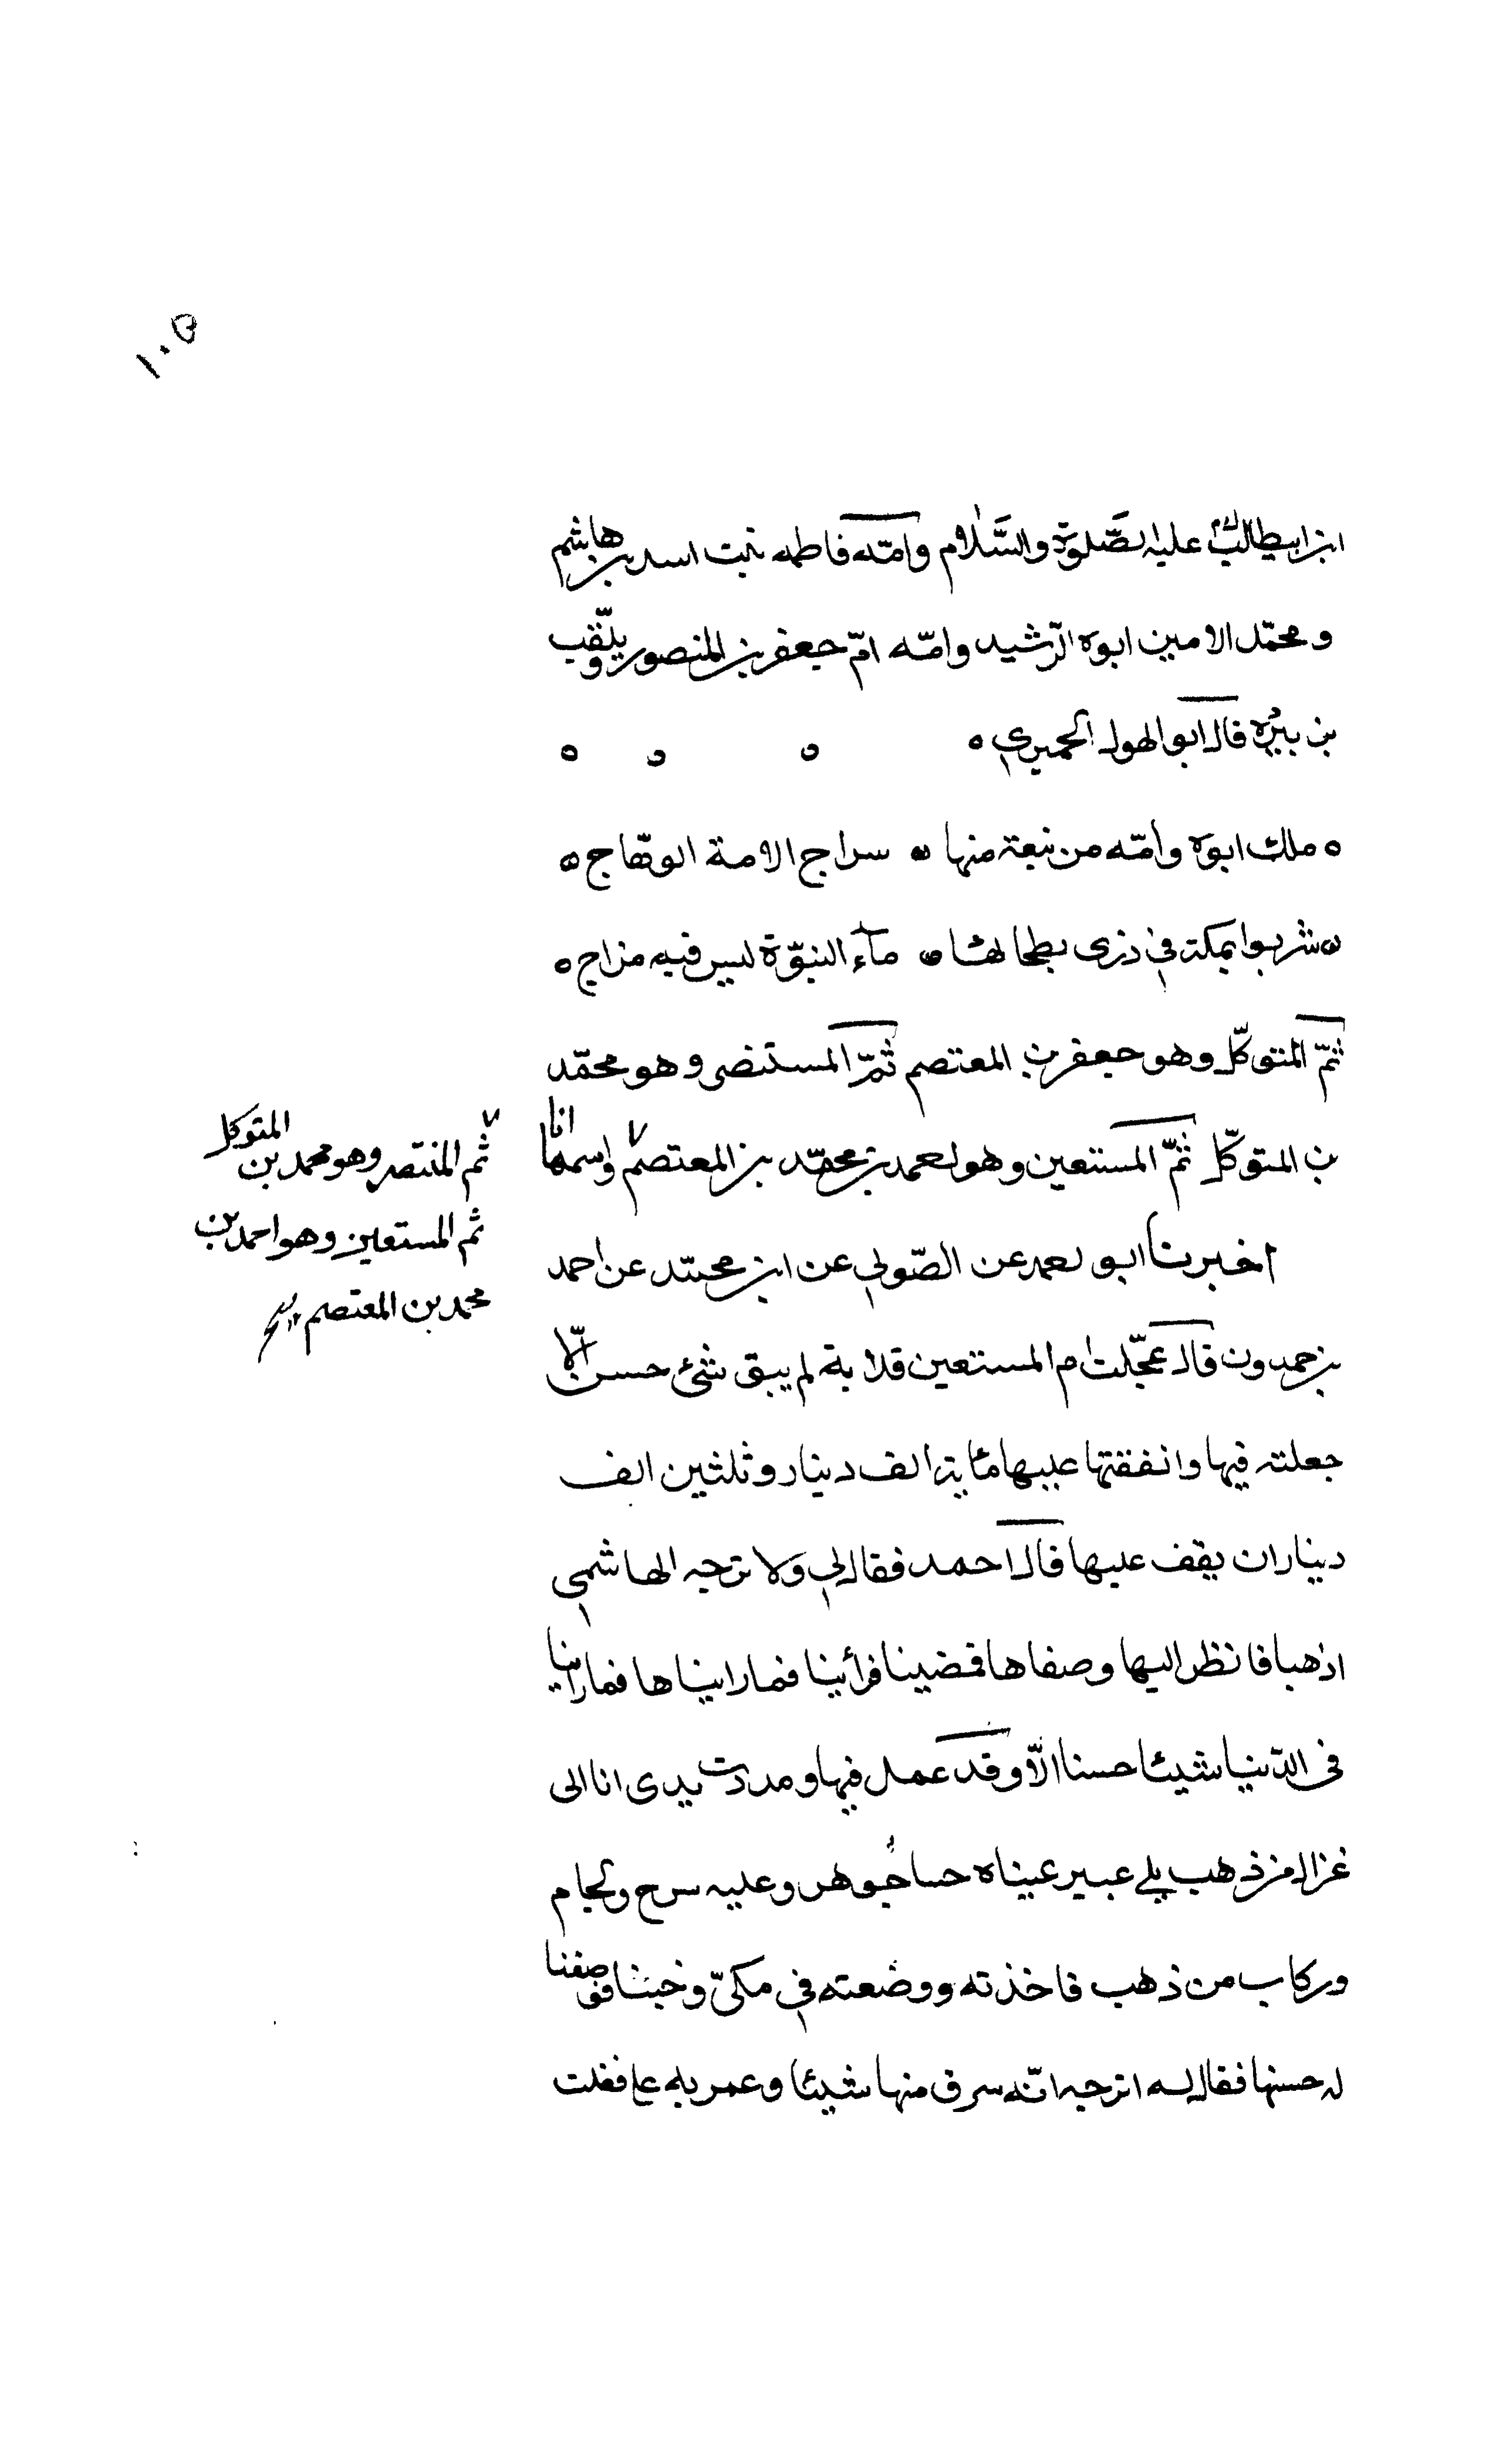 ١٠٥
ابن ابيطالب عليه الصّلوة والسَّلام وامّه فاطمه بنت اسد بن هاشم
و محمّد الامين ابوه الرّشيد وامّه امّ جعفر بن المنصور ويلّقب
بن ببره قال ابو الهول الحميرى ٥ ٥ ٥ ٥
٥ ملك ابوه وامّه من نبعة منها ٥ سراج الامة الوهّاج ٥
٥ شربوا بمكة في ذرى بطحائها ٥ مآء النبوّة ليس فيه مزاج ٥
ثمّ المتوكّل وهو جعفر بن المعتصم ثمّ المستنصر وهو محمّد
بن المتوكّل ثمّ المستعين وهو احمد بن محمّد بن المعتصم واسمها انا
ثم المنتصر وهو محمد بن المتوكل
ثم المستعين وهو احمد بن
محمد بن المعتصم
اخبرنا ابو احمد عن الصّولي عن ابن محمّد عن احمد
بن حمدون قال عجّلت ام المستعين قلابة لم يبق شئ حسن الّا
جعلته فيها وانفقتها عليها مائة الف دينار وثلثين الف
دينار ان يقف عليها قال احمد فقال لي ولا ترجه الهاشمى
اذهبا فانظر اليها وصفاها فمضينا فرأينا فما راينا ها فما راينا
فى الدّنيا شيئا حسنا الّا وقد عمل فيها ومددت يدى انا الى
غزال من ذهب ملے عبير عيناه حبتا جوهر وعليه سرج ولجام
وركاب من ذهب فاخذته ووضعته في مكىّ وخبنا فوصفنا
له حسنها فقال له اترجه انّه سرق منها شيئا وعمر به علي فقلت